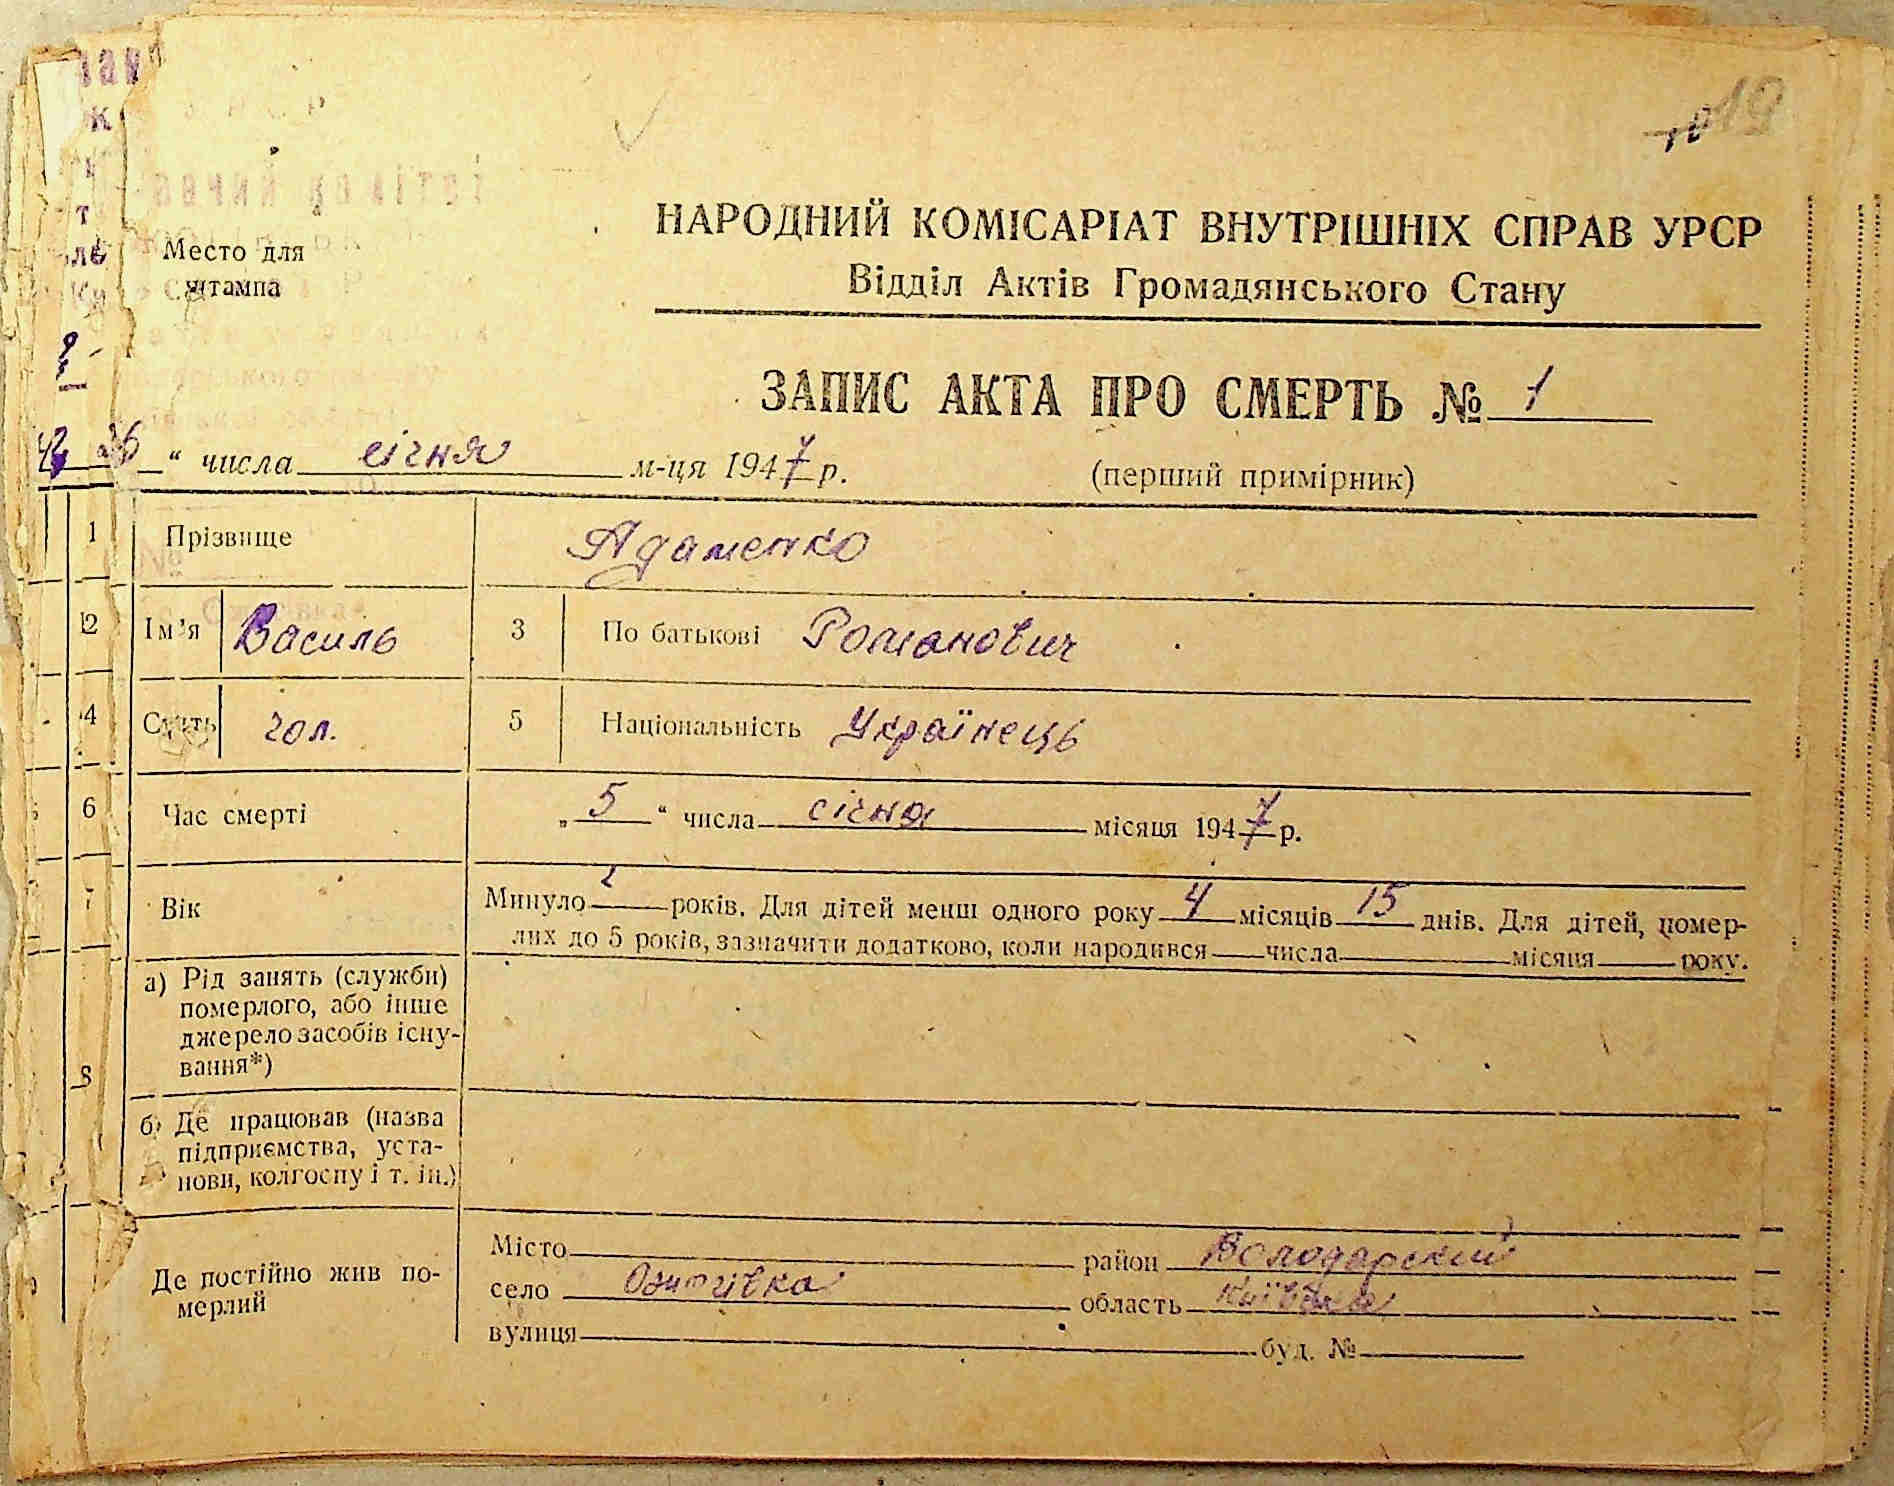 12
Место для
штампа
НАРОДНИЙ КОМІСАРІАТ ВНУТРІШНІХ СПРАВ УРСР
Відділ Актів Громадянського Стану
ЗАПИС АКТА ПРО СМЕРТЬ № 1
26 “ числа січня м-ця 1947 р. (перший примірник)
1 Прізвище Адаменко
2 Ім’я Василь 3 По батькові Романович
4 Стать чол. 5 Національність Українець
6 Час смерті „ 5 “ числа січня місяця 1947 р.
7 Вік Минуло років. Для дітей менш одного року 4 місяців 15 днів. Для дітей, помер-
лих до 5 років, зазначити додатково, коли народився числа місяця року.
8
а) Рід занять (служби)
померлого, або інше
джерело засобів існу-
вання*)
б) Де працював (назва
підприємства, уста-
нови, колгоспу і т. ін.)
Де постійно жив по-
мерлий
Місто район Володарский
село область Київська
вулиця буд. №